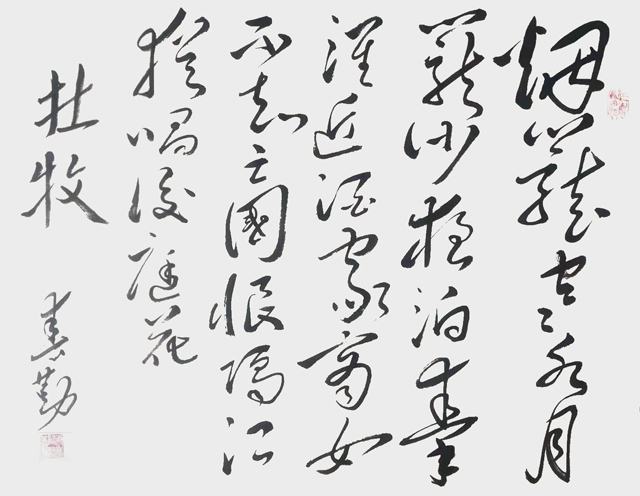 烟籠寒水月
籠沙夜泊秦
淮近酒家商女
不知亡國恨隔江
猶唱後庭花
杜牧